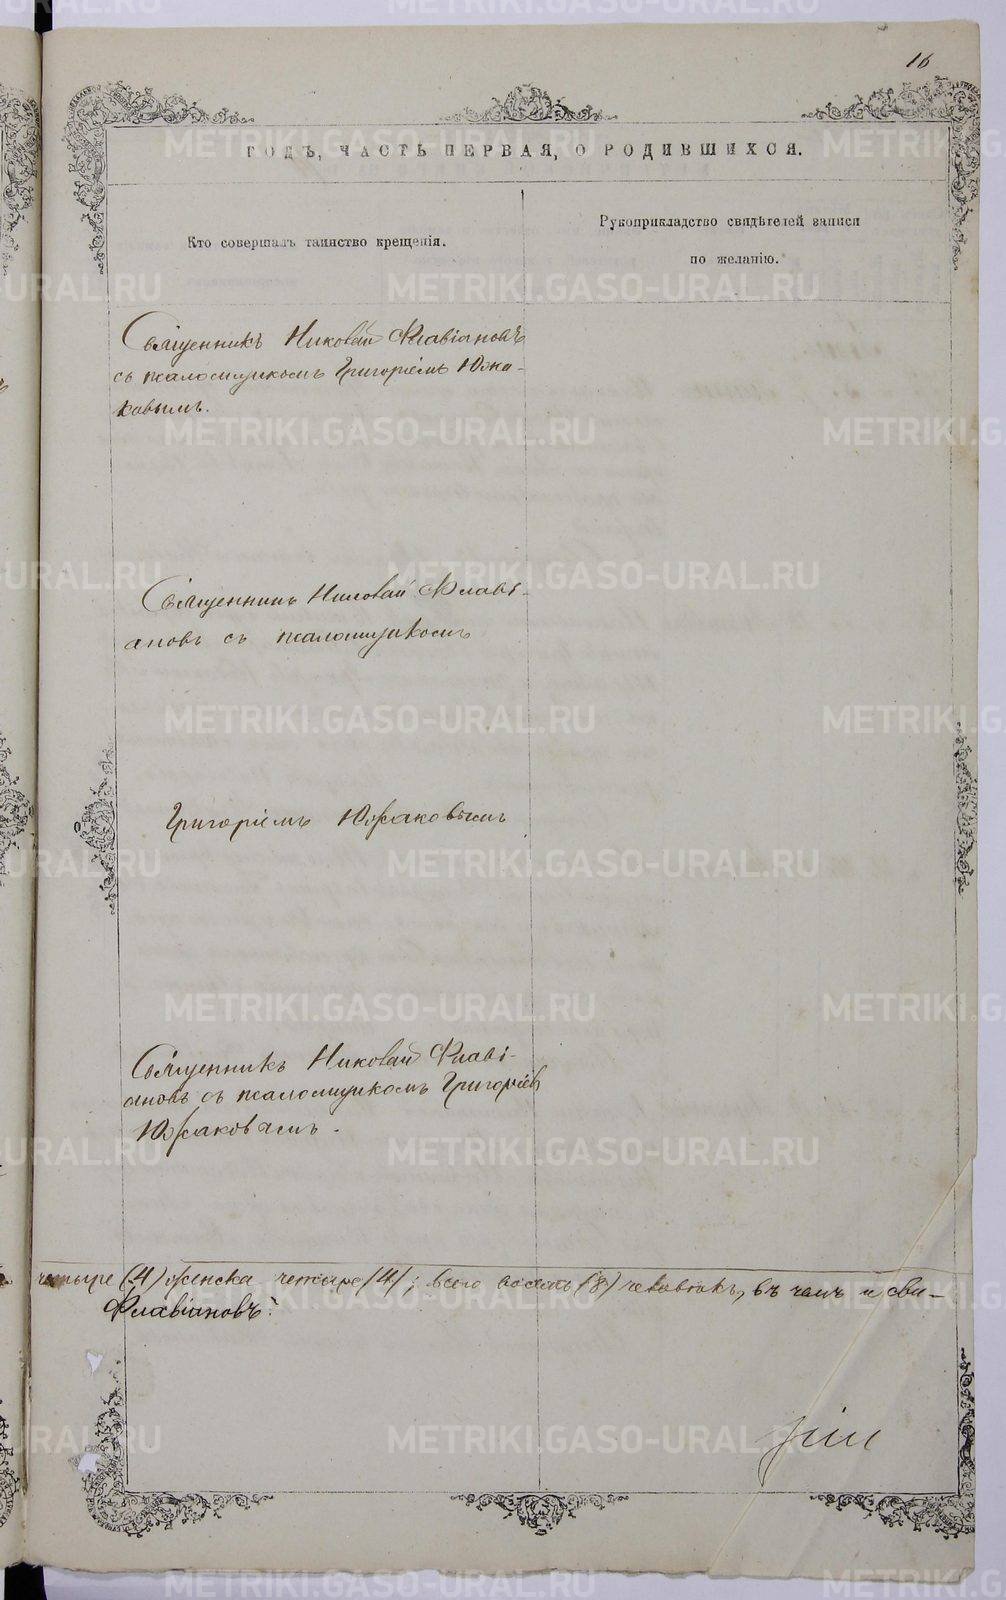 16
ГОДЪ, ЧАСТЬ ПЕРВАЯ, О РОДИВШИХСЯ.
Кто совершалъ таинство крещенія.
Рукоприкладство свидѣтелей записи
по желанію.
Священникъ Николай Флавіановъ
съ псаломщикомъ Григоріемъ Южа-
ковымъ.
Священникъ Николай Флаві-
ановъ съ псаломщикомъ
Григоріемъ Южаковымъ
Священникъ Николай Флаві-
ановъ съ псаломщикомъ Григоріем
Южаковымъ.
четыре (4) женска четыре (4); всего восемь (8) человѣкъ, въ чемъ и сви-
Флавіановъ.
METRIKI.GASO-URAL.RU